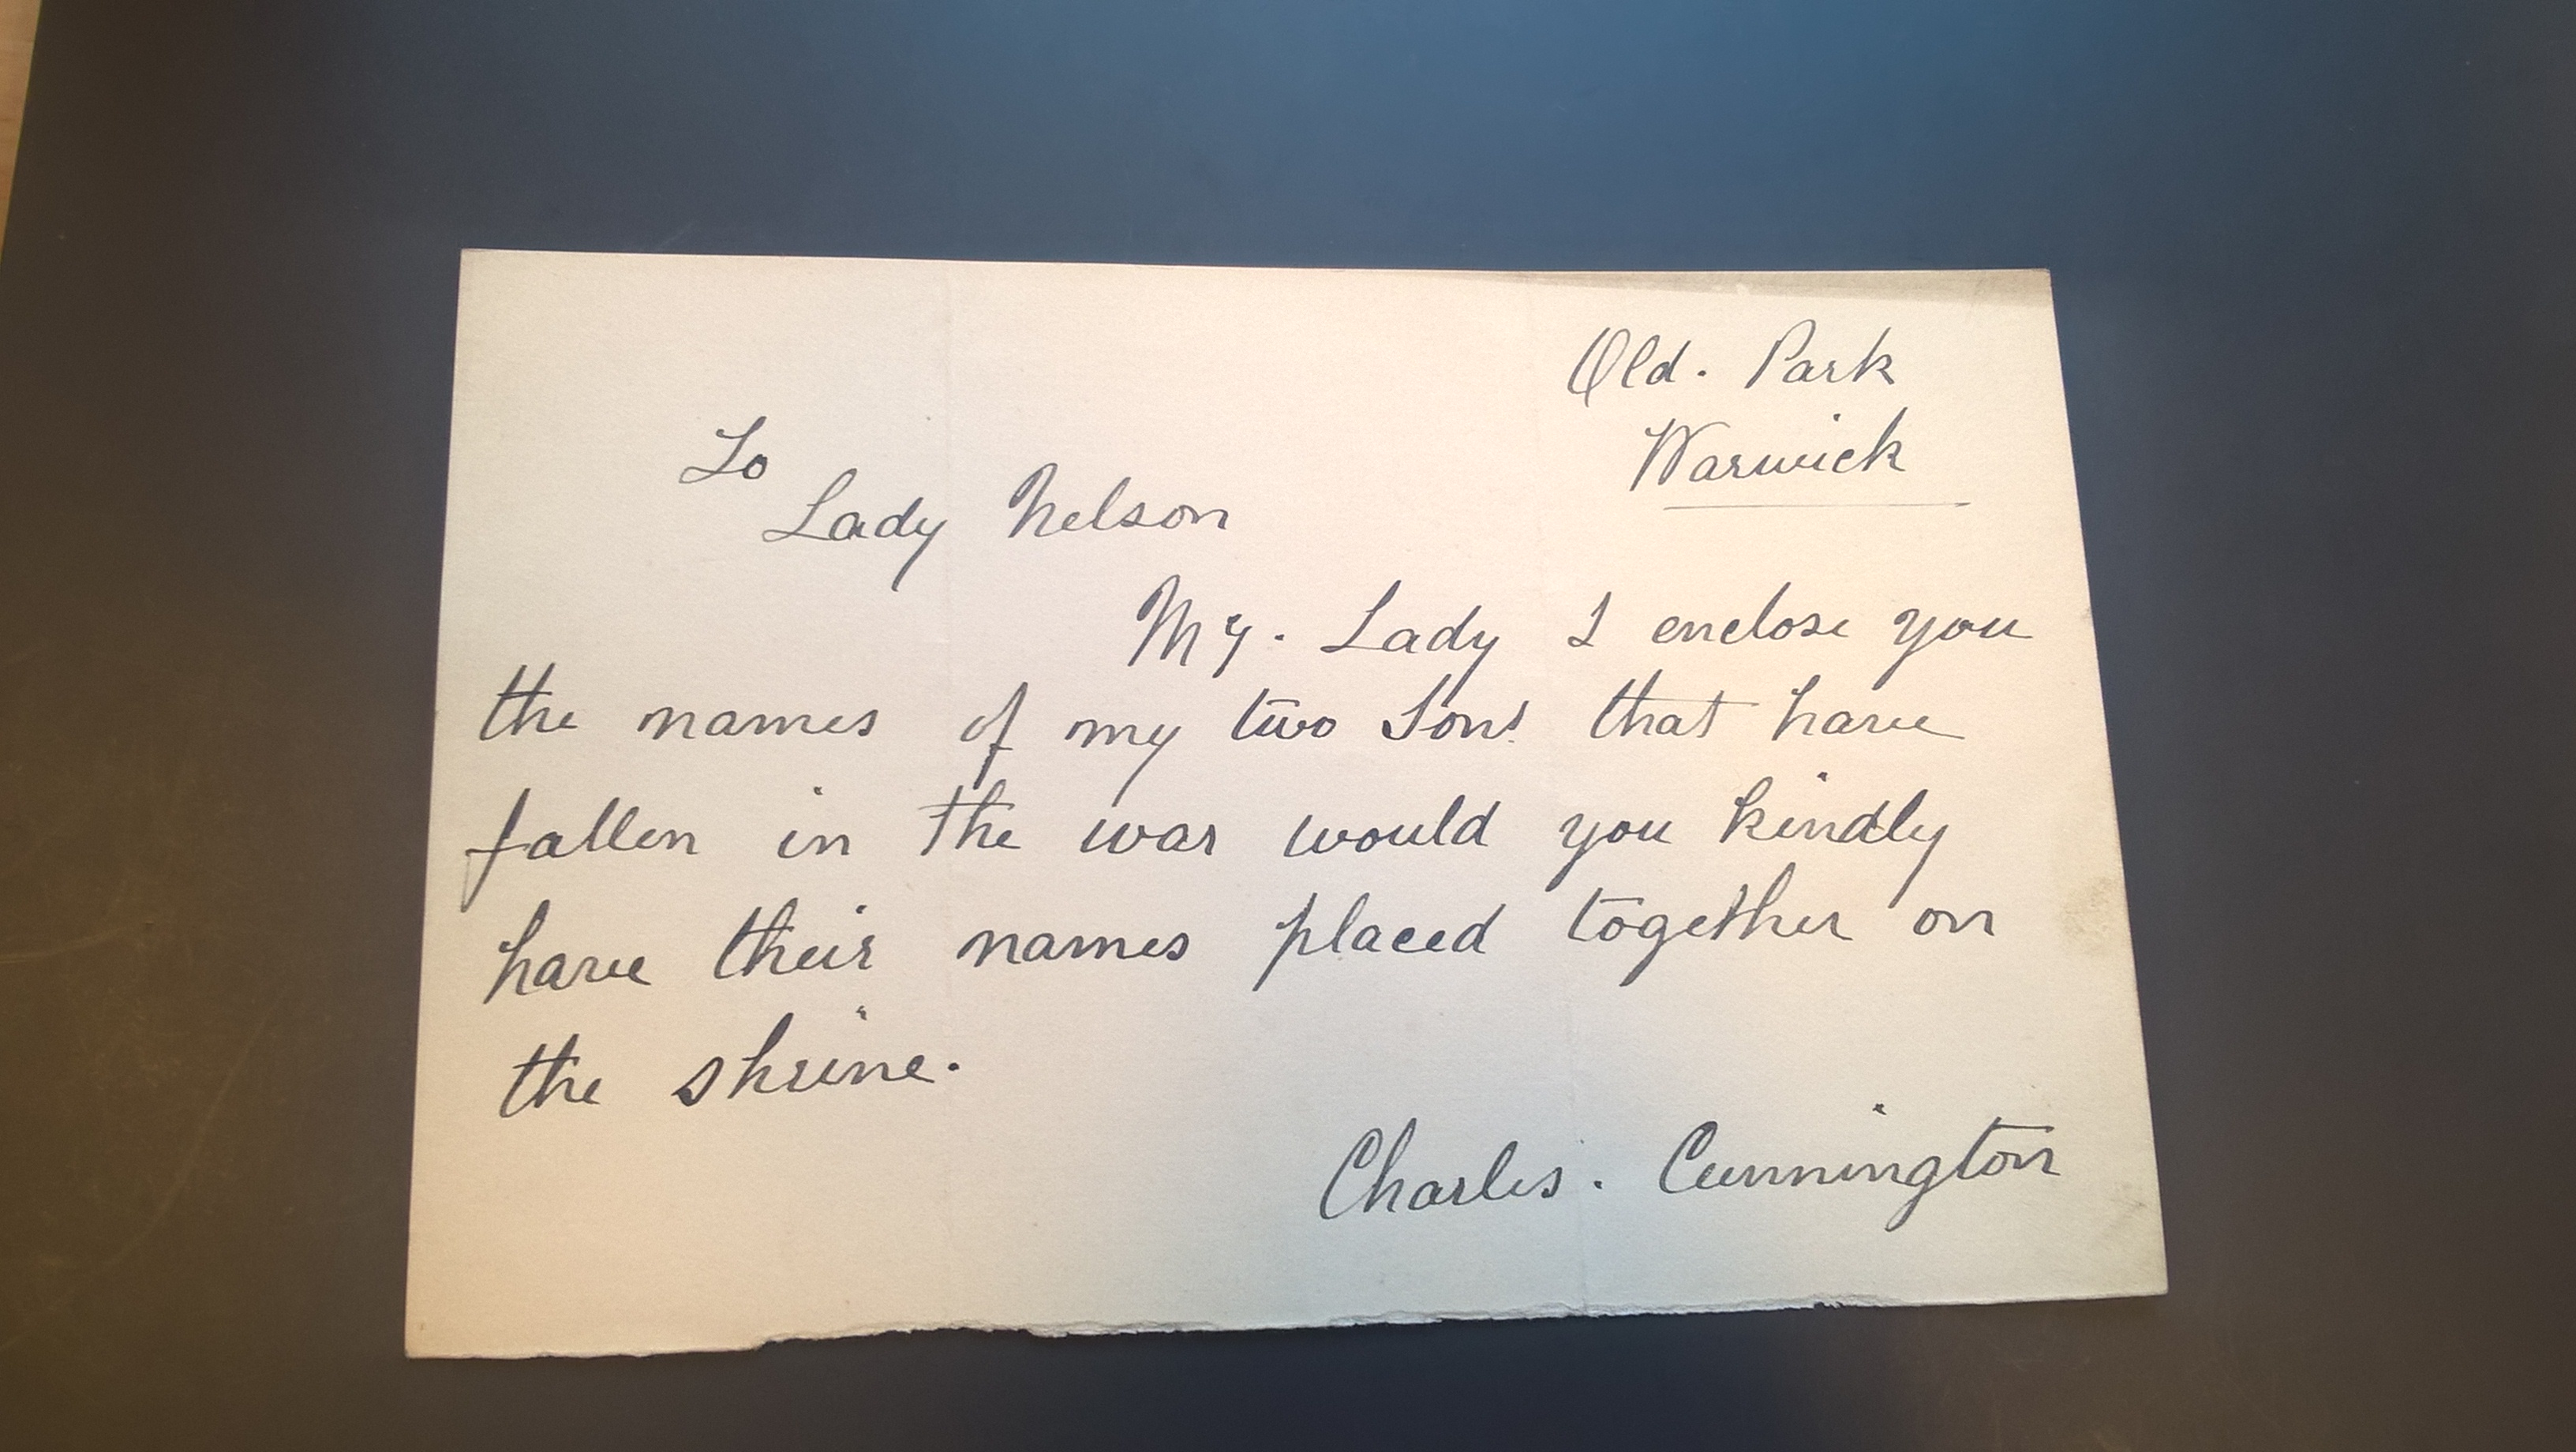 Old. Park
Warwick
To
Lady Nelson
My. Lady I enclose you
the names of my two Sons that have
fallen in the war would you kindly
have their names placed together on
the shrine.
Charles. Cunnington